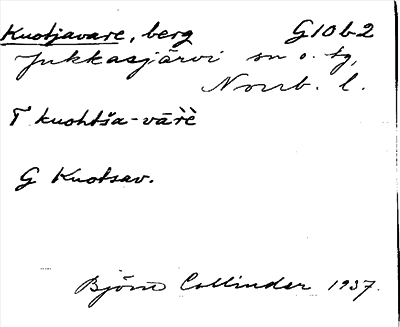 Kuotjavare, berg G10b2
Jukkasjärvi sn o. tg,
Norrb. l.
T kuohtša-vārè̀
G Kuotsav.
Björn Collinder 1937.